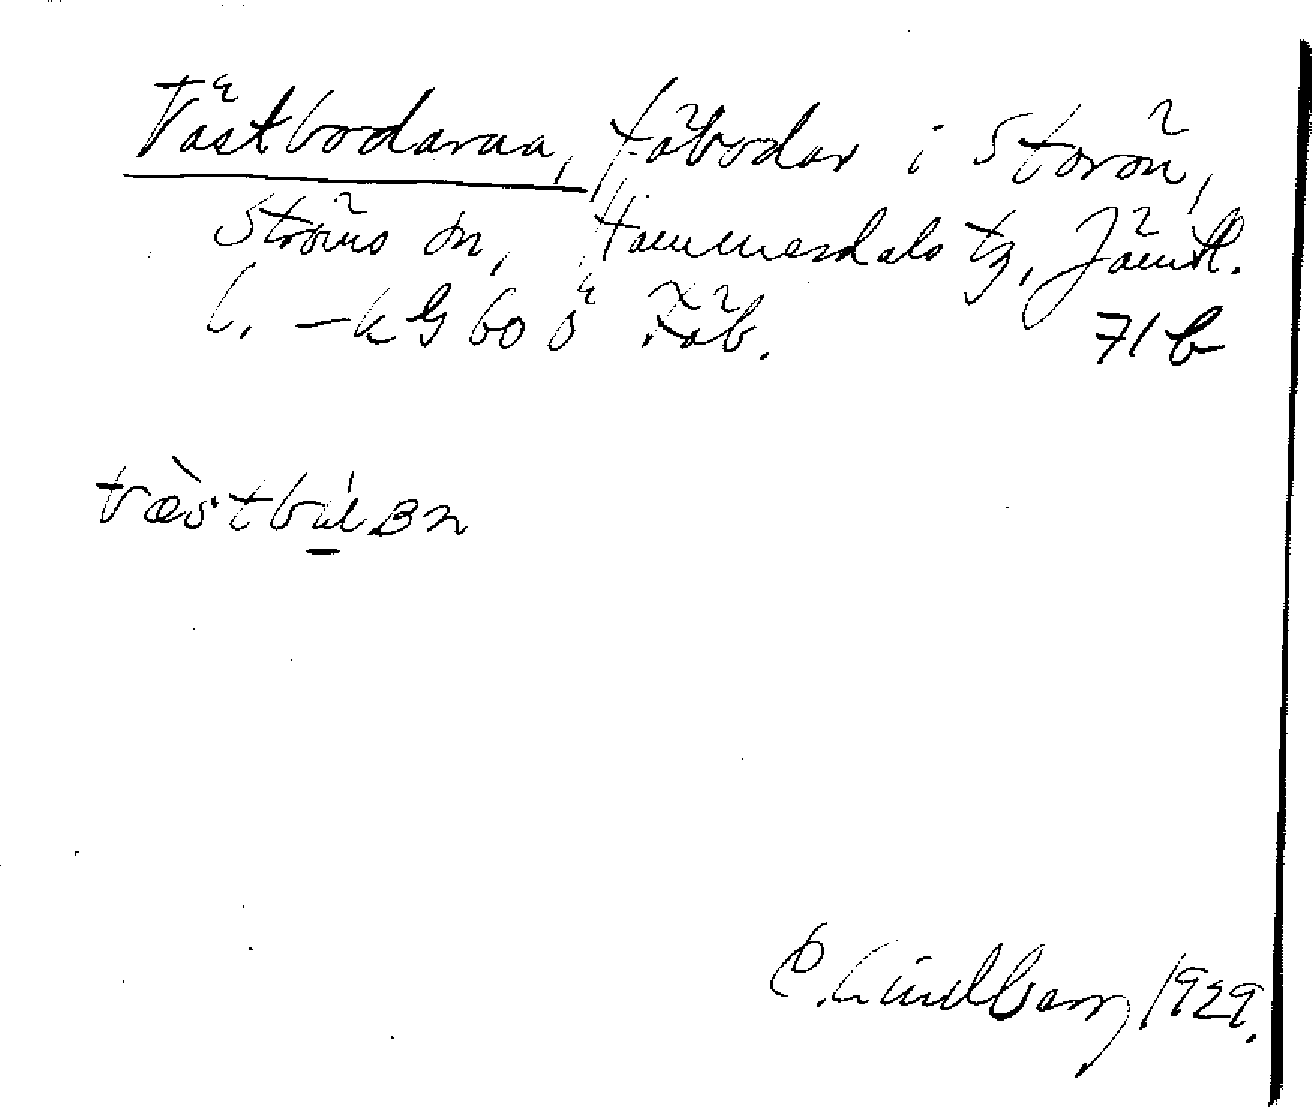 Västbodarna, fäbodar i Storön,
Ströms sn, Hammerdals tg, Jämtl.
l. – kG 60 ö Fäb. 71 b
C. Lindberg 1929.